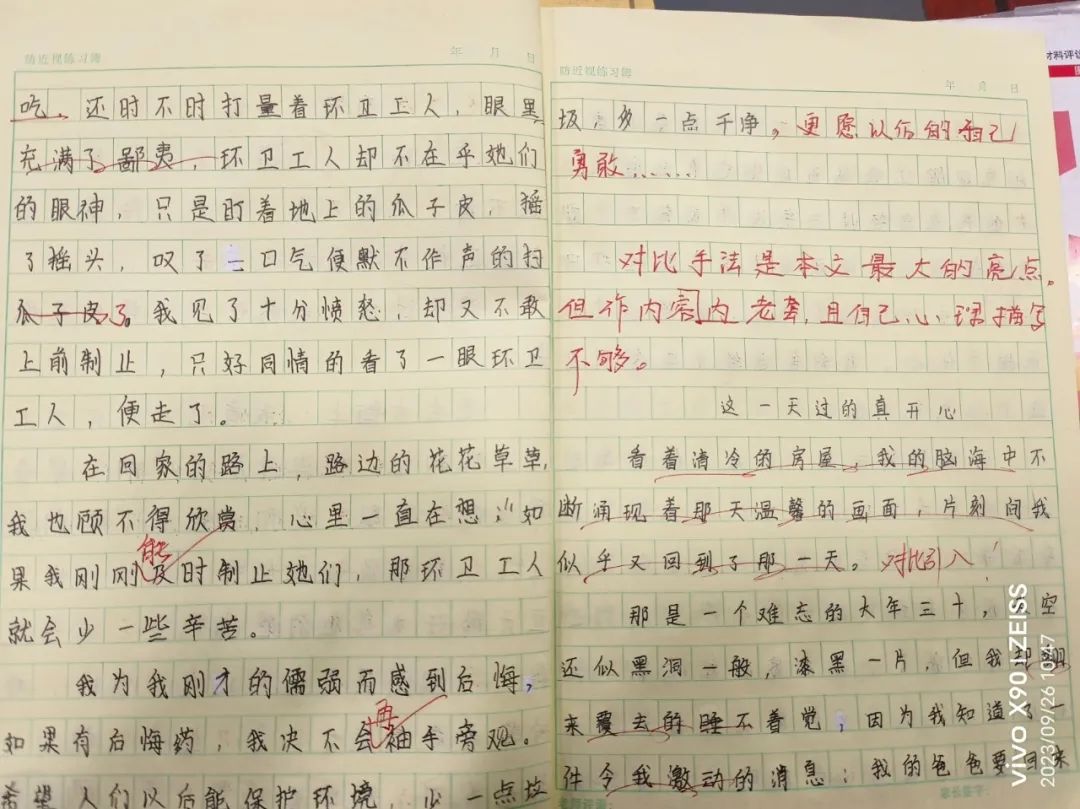 防近视练习簿
年 月 日
吃，还时不时打量着环卫工人，眼里
充满了鄙夷，环卫工人却不在乎她们
的眼神，只是盯着地上的瓜子皮，摇
了摇头，叹了一口气便默不作声的扫
瓜子皮了。我见了十分愤怒，却又不敢
上前制止，只好同情的看了一眼环卫
工人，便走了。
在回家的路上，路边的花花草草，
我也顾不得欣赏，心里一直在想：“如
能
果我刚刚及时制止她们，那环卫工人
就会少一些辛苦。
我为我刚才的懦弱而感到后悔，
再
如果有后悔药，我决不会袖手旁观。
希望人们以后能保护环境，少一点垃
防近视练习簿
年 月 日
圾，多一点干净。更愿以后的自己
勇敢……
对比手法是本文最大的亮点，
但作内容内老套，且自己心理描写
不够。
这一天过的真开心
看着清冷的房屋，我的脑海中不
断涌现着那天温馨的画面，片刻间我
似乎又回到了那一天。对比引入！
那是一个难忘的大年三十，空
还似黑洞一般，漆黑一片，但我翻
来覆去的睡不着觉，因为我知道了一
件令我激动的消息：我的爸爸要回来
家长签字：
材料评议
vivo X90 | ZEISS
2023/09/26 10:47